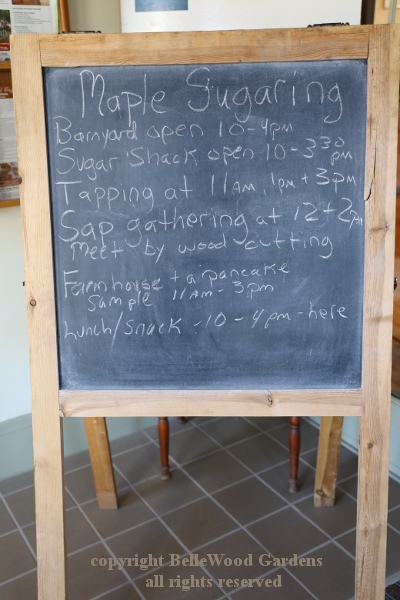 Maple Sugaring
Barnyard open 10-4pm
Sugar Shack open 10-3:30 pm
Tapping at 11AM, 1pm + 3pm
Sap gathering at 12 + 2pm
Meet by wood cutting
Farmhouse + a pancake
Sample 11am - 3pm
Lunch/Snack - 10 - 4pm - here
copyright BelleWood Gardens
all rights reserved